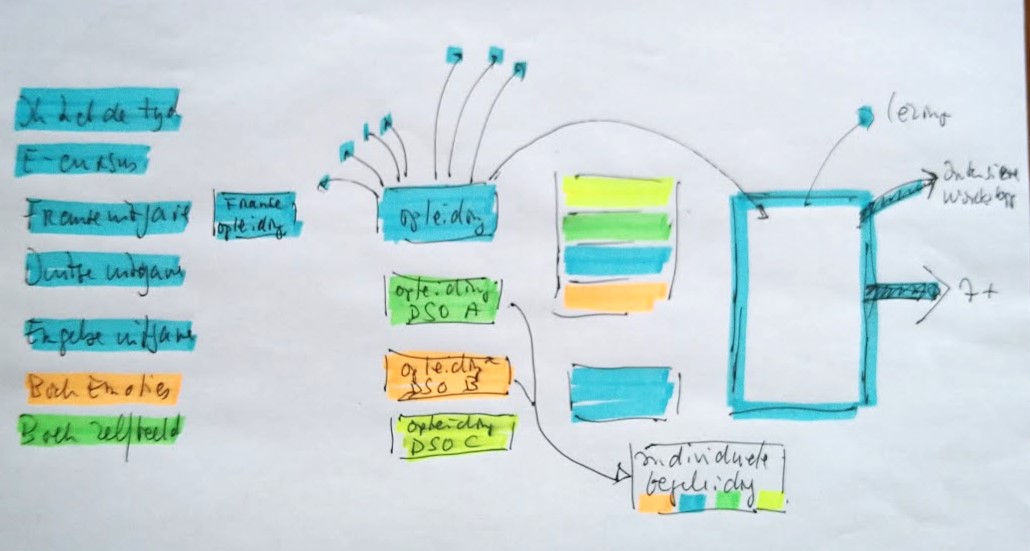 E-cursus
Franse uitgave
Duitse uitgave
Engelse uitgave
Boek Emoties
Boek Zelfbeeld
Franse
opleiding
opleiding
opleiding
DSO A
opleiding
DSO B
opleiding
DSO C
individuele
begeleiding
lezing
Intensieve
Workshop
7+